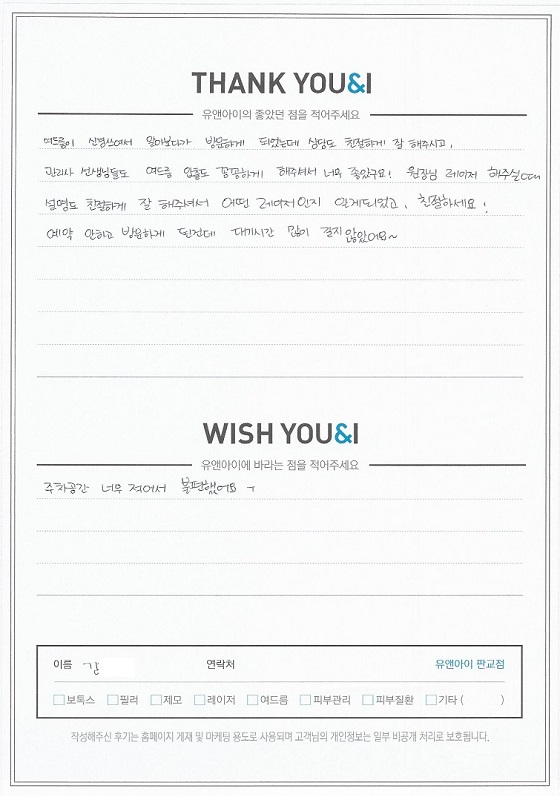 THANK YOU&I
유앤아이의 좋았던 점을 적어주세요
여드름이 신경쓰여서 알아보다가 방문하게 되었는데 상담도 친절하게 잘 해주시고,
관리사 선생님들도 여드름 압출도 꼼꼼하게 해주셔서 너무 좋았구요! 원장님 레이저 해주실때
설명도 친절하게 잘 해주셔서 어떤 레이저인지 알게되었고, 친절하세요!
예약 안하고 방문하게 된건데 대기시간 많이 길지 않았어요~
WISH YOU&I
유앤아이에 바라는 점을 적어주세요
주차공간 너무 적어서 불편했어요 ㅜ
이름 연락처 유앤아이 판교점
보톡스 필러 제모 레이저 여드름 피부관리 피부질환 기타 ( )
작성해주신 후기는 홈페이지 게재 및 마케팅 용도로 사용되며 고객님의 개인정보는 일부 비공개 처리로 보호됩니다.